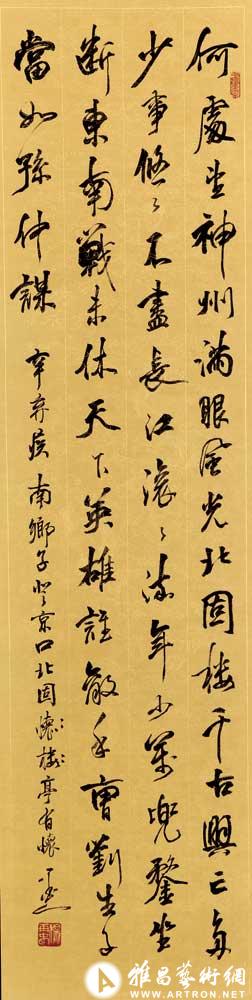 何處望神州滿眼風光北固樓千古興亡多
少事悠々不盡長江滾々流年少萬兜鍪坐
斷東南戰未休天下英雄誰敵手曹劉生子
當如孫仲謀
辛弃疾南鄉子登京口北固懷樓亭有懷
雅昌藝術網
WWW.ARTRON.NET